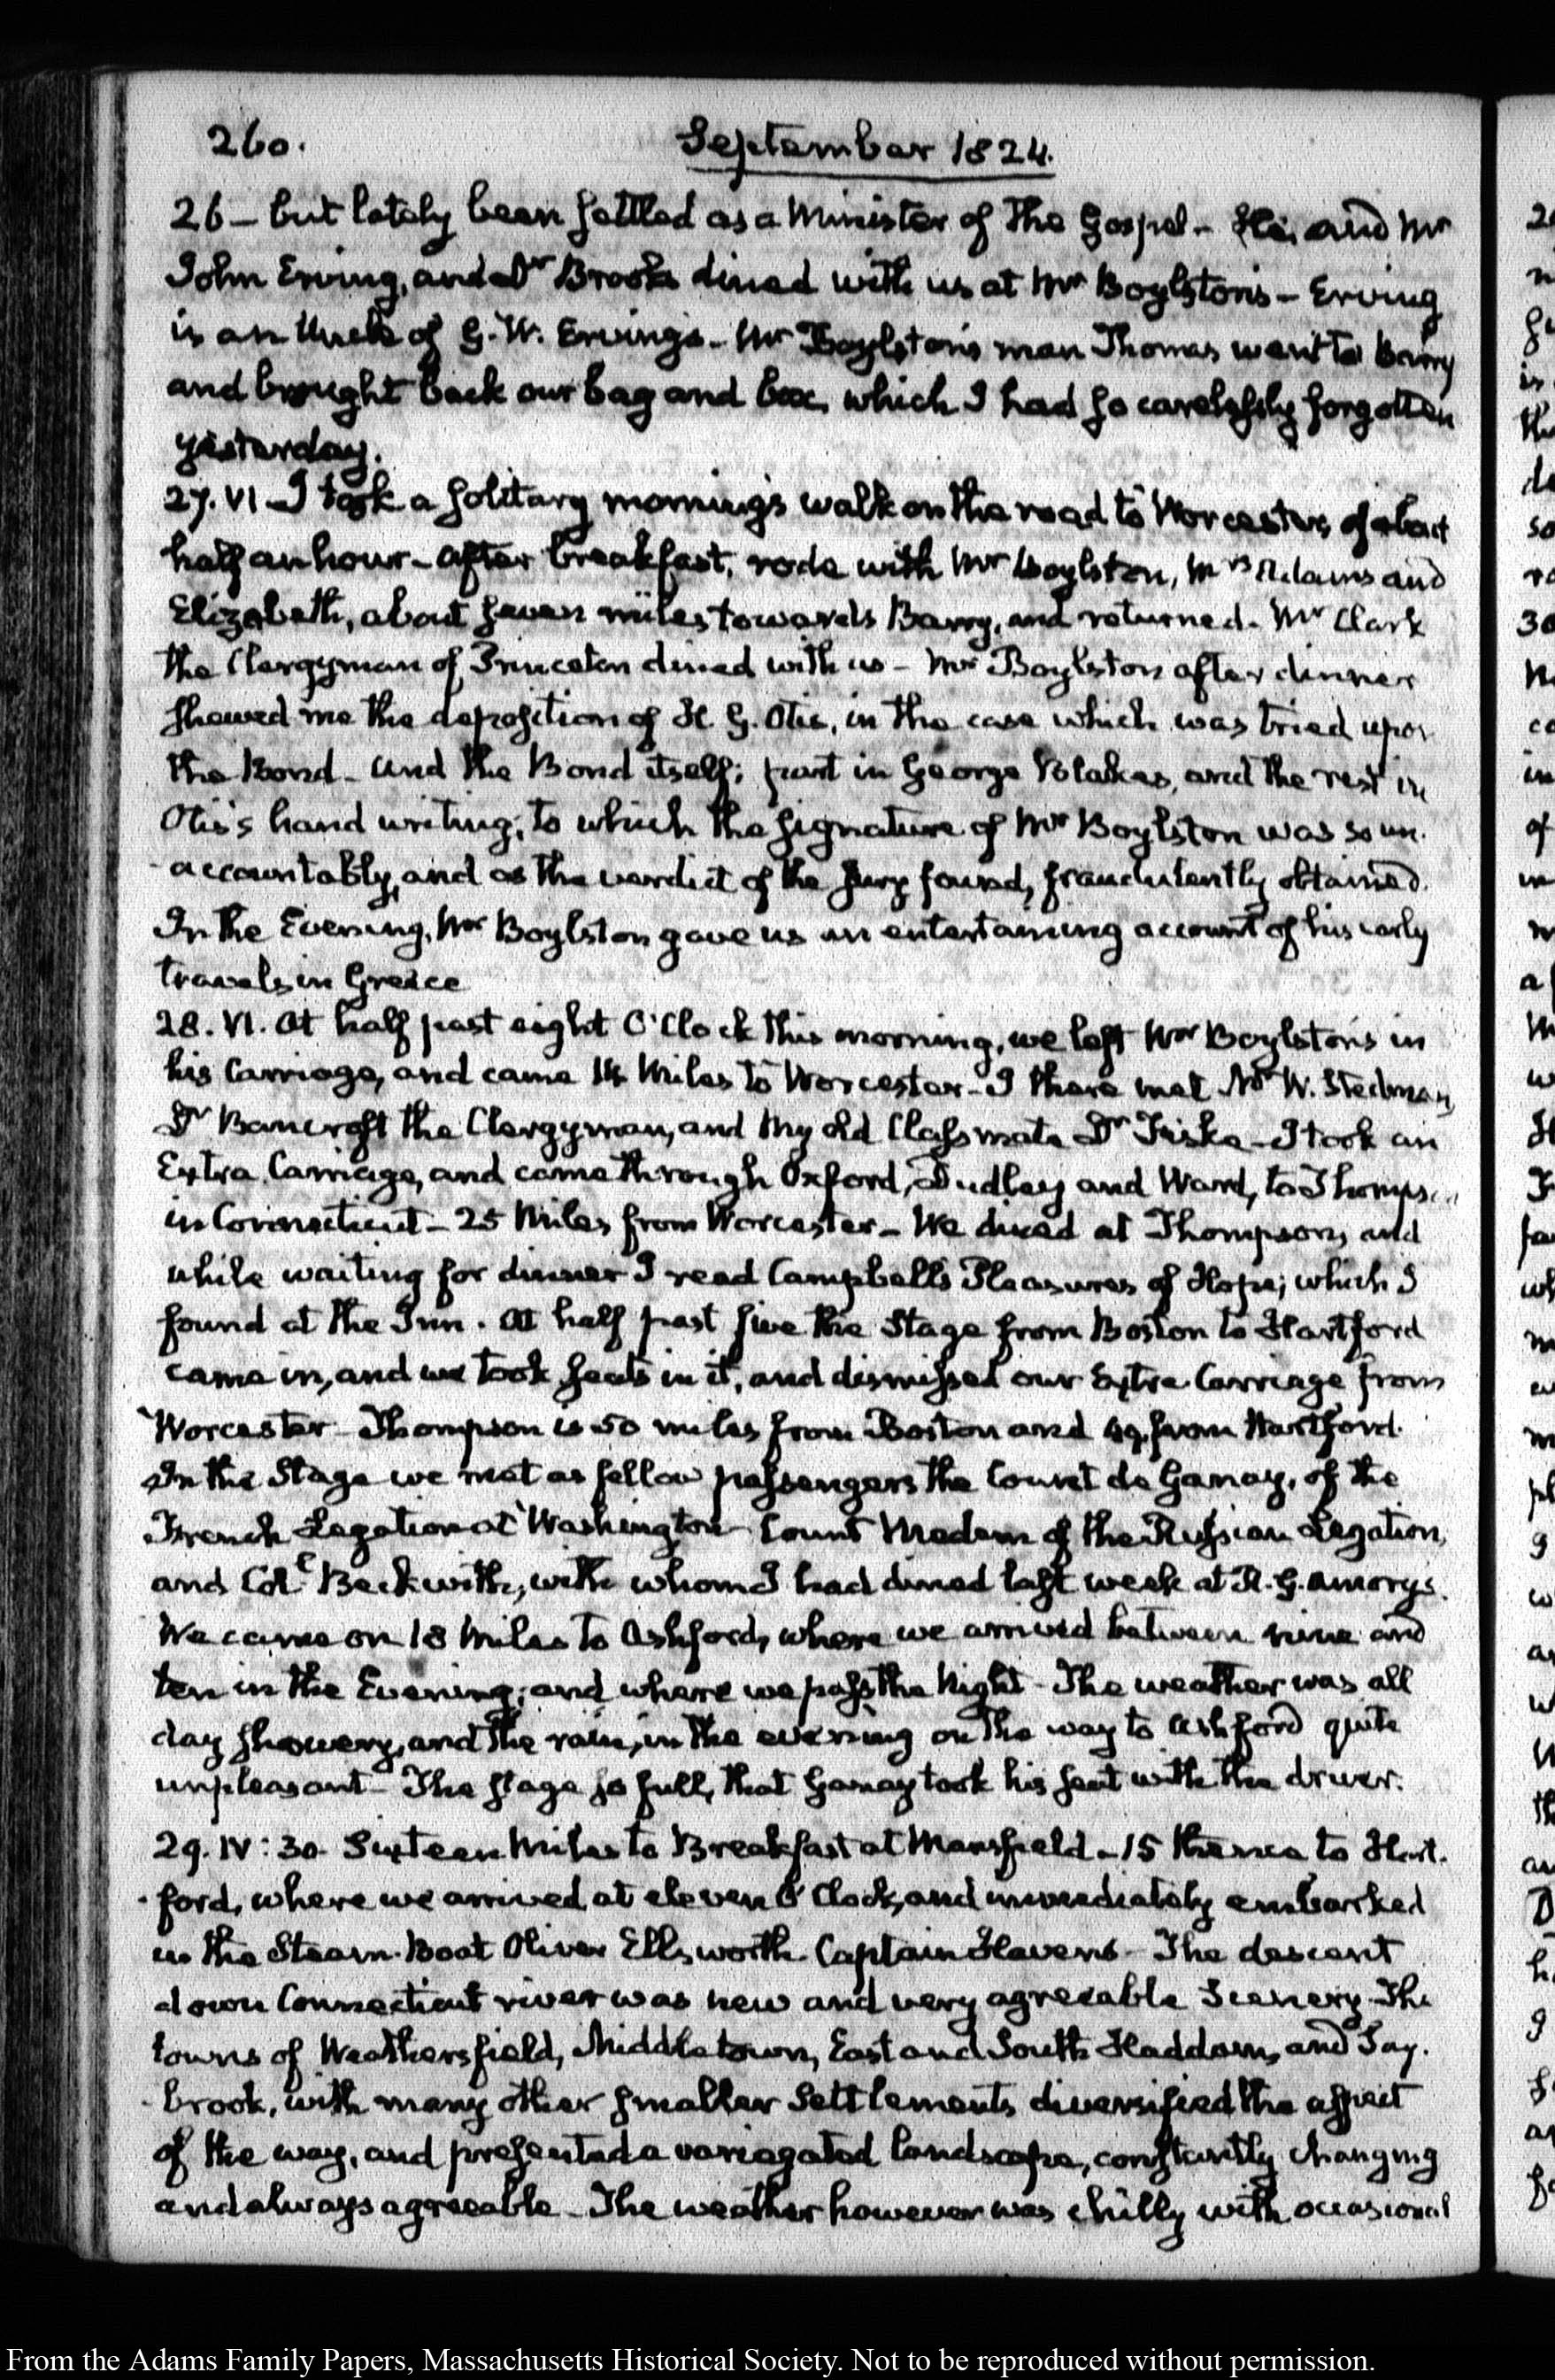 260.
September 1824.
26 – but lately been settled as a Minister of the Gospel – He, and Mr
John Erving, and Dr Brooks dined with us at Mr Boylston's – Erving
is an Uncle of G. W. Erving's – Mr Boylston's man Thomas went to Barry
and brought back our bag and box, which I had so carelessly forgotten
yesterday.
27. VI – I took a solitary morning's walk on the road to Worcester, of about
half an hour – After breakfast, rode with Mr Boylston, Mrs Adams and
Elizabeth, about seven miles towards Barry, and returned. Mr Clark
the Clergyman of Princeton dined with us – Mr Boylston after dinner
shewed me the deposition of H. G. Otis, in the case which was tried upon
the Bond – and the Bond itself; part in George Blakes, and the rest in
Otis's hand writing; to which the signature of Mr Boylston was so un-
accountably, and as the verdict of the Jury found, fraudulently obtained.
In the Evening, Mr Boylston gave us an entertaining account of his early
travels in Greece
28. VI. At half past eight O'Clock this morning, we left Mr Boylston's in
his Carriage, and came 14 Miles to Worcester – I there met Mr W. Stedman,
Dr Bancroft the Clergyman, and my old Classmate Dr Fiske – I took an
Extra Carriage, and came through Oxford, Dudley and Ward, to Thompson
in Connecticut – 25 Miles from Worcester – We dined at Thompson, and
while waiting for dinner I read Campbell's Pleasures of Hope; which I
found at the Inn. At half past five the Stage from Boston to Hartford
came in, and we took seats in it, and dismissed our Extra Carriage from
Worcester – Thompson is 50 miles from Boston and 49 from Hartford.
In the Stage we met as fellow passengers the Count de Ganay, of the
French Legation at Washington – Count Medem of the Russian Legation,
and Coll Beckwith, with whom I had dined last week at R. G. Amory's.
We came on 18 Miles to Ashford, where we arrived between nine and
ten in the Evening; and where we pass the Night – The weather was all
day showery, and the rain, in the evening on the way to Ashford quite
unpleasant – The stage so full, that Ganay took his seat with the driver.
29. IV: 30. Sixteen Miles to Breakfast at Mansfield – 15 thence to Hart-
ford, where we arrived at eleven O'Clock, and immediately embarked
in the Steam-Boat Oliver Ellsworth. Captain Havens – The descent
down Connecticut river was new and very agreeable Scenery. The
towns of Weathersfield, Middletown, East and South Haddam, and Say-
brook, with many other smaller settlements diversified the aspect
of the way, and presented a variegated landscape, constantly changing
and always agreeable – The weather however was chilly with occasional
From the Adams Family Papers, Massachusetts Historical Society. Not to be reproduced without permission.